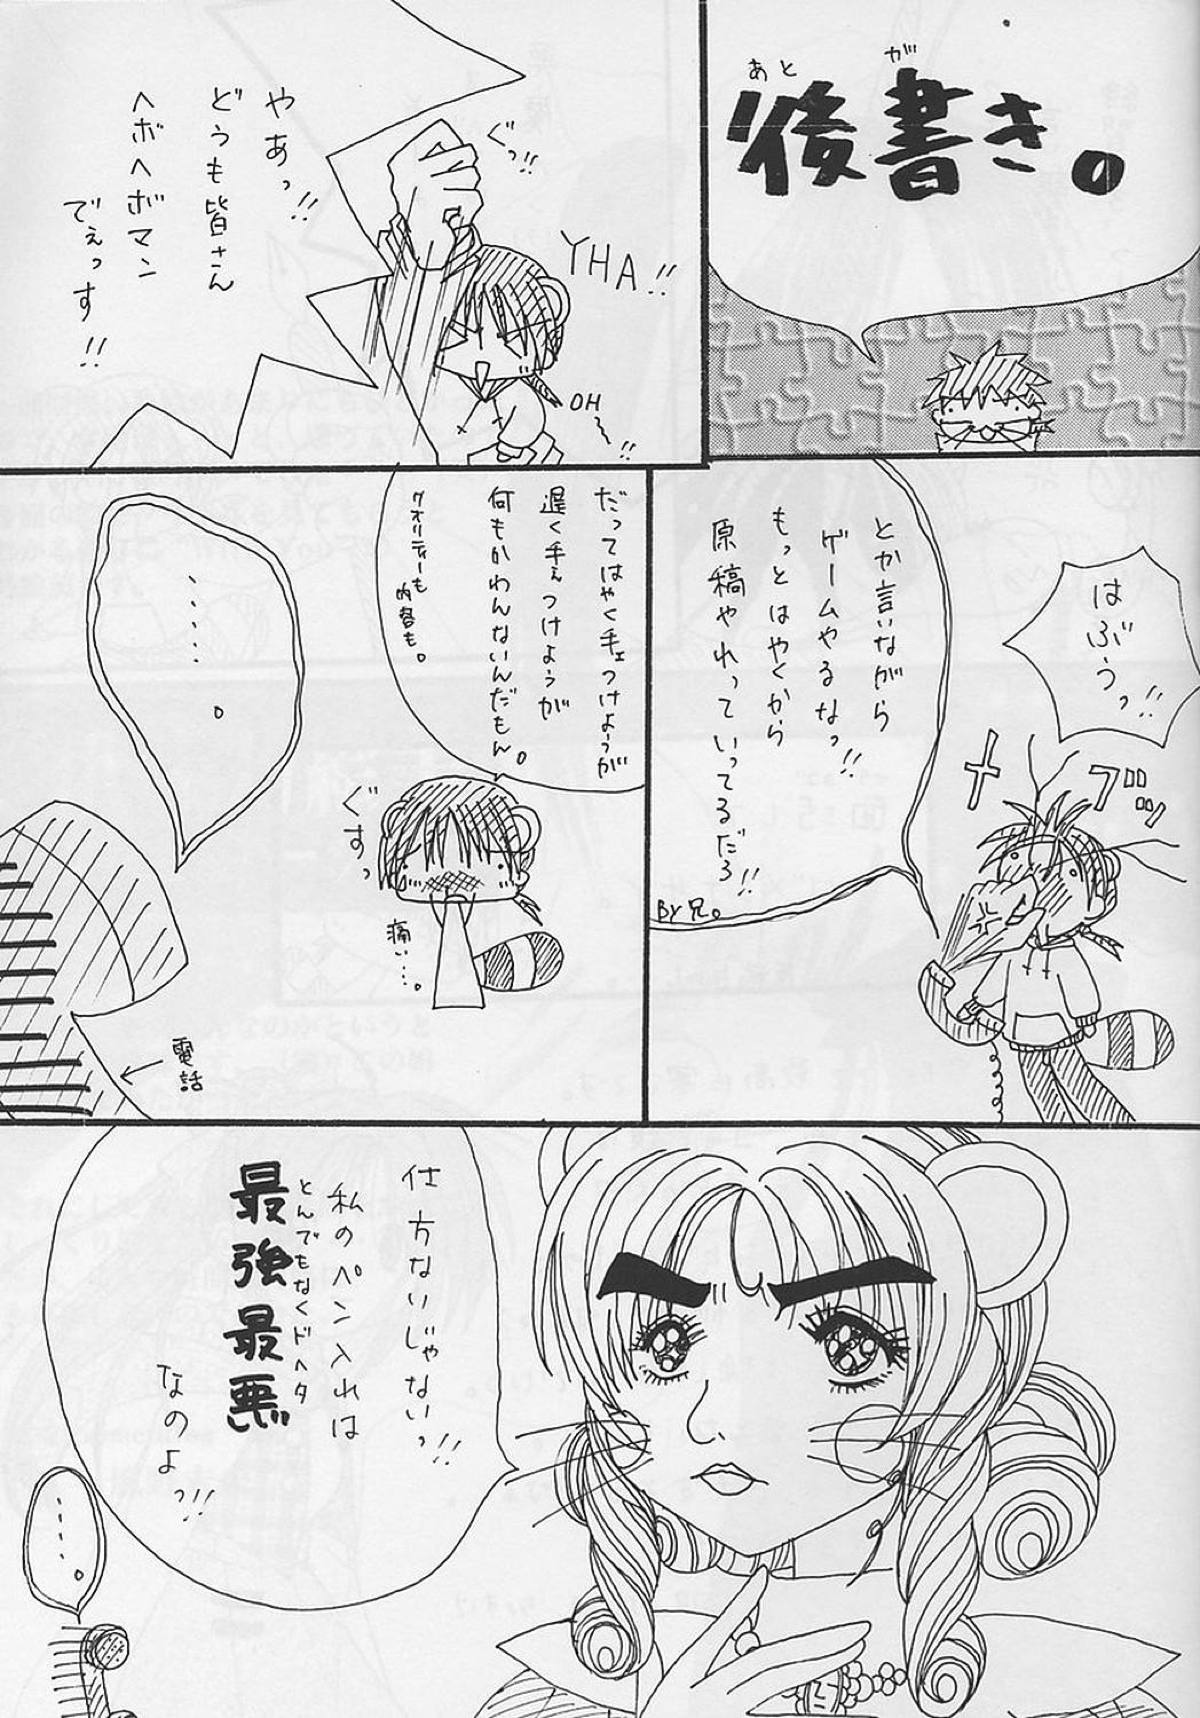 あとが
後書き。
やあっ!!
どうも皆さん
へボへボマン
でぇっす!!
ぐっ!!
YHA!!
OH
〜!!
はぶうっ!!
メ
ブッ
とか言いながら
ゲームやるなっ!!
もっとはやくから
原稿やれっていってるだろ!!
BY兄。
だってはやく手ェつけようが
遅く手ぇつけようが
何もかわんないんだもん。
クオリティーも
内容も。
ぐすっ
痛い…。
……。
電話
仕方ないじゃないっ!!
私のペン入れは
とんでもなくドヘタ
最強最悪
なのよっ!!
……。